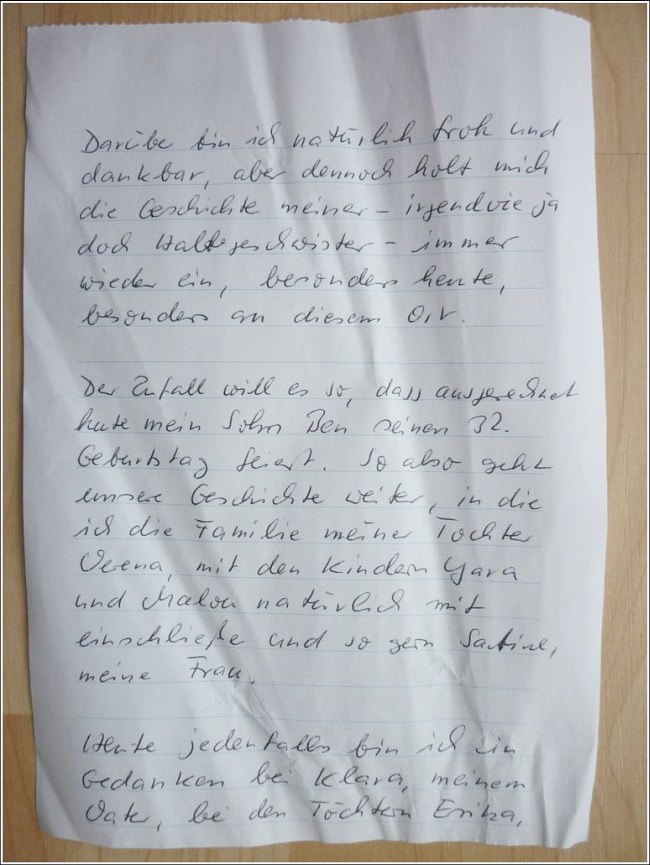 Darübe bin ich natürlich froh und
dankbar, aber dennoch holt mich
die Geschichte meiner - irgendwie ja
doch Halbgeschwister - immer
wieder ein, besonders heute,
besonders an diesem Ort.
Der Zufall will es so, dass ausgerechnet
heute mein Sohn Ben seinen 32.
Geburtstag feiert. So also geht
unsere Geschichte weiter, in die
ich die Familie meiner Tochter
Verena, mit den Kindern Yara
und Malou natürlich mit
einschließe und so gern Sabine,
meine Frau.
Heute jedenfalls bin ich in
Gedanken bei Klara, meinem
Vater, bei den Töchtern Erika,